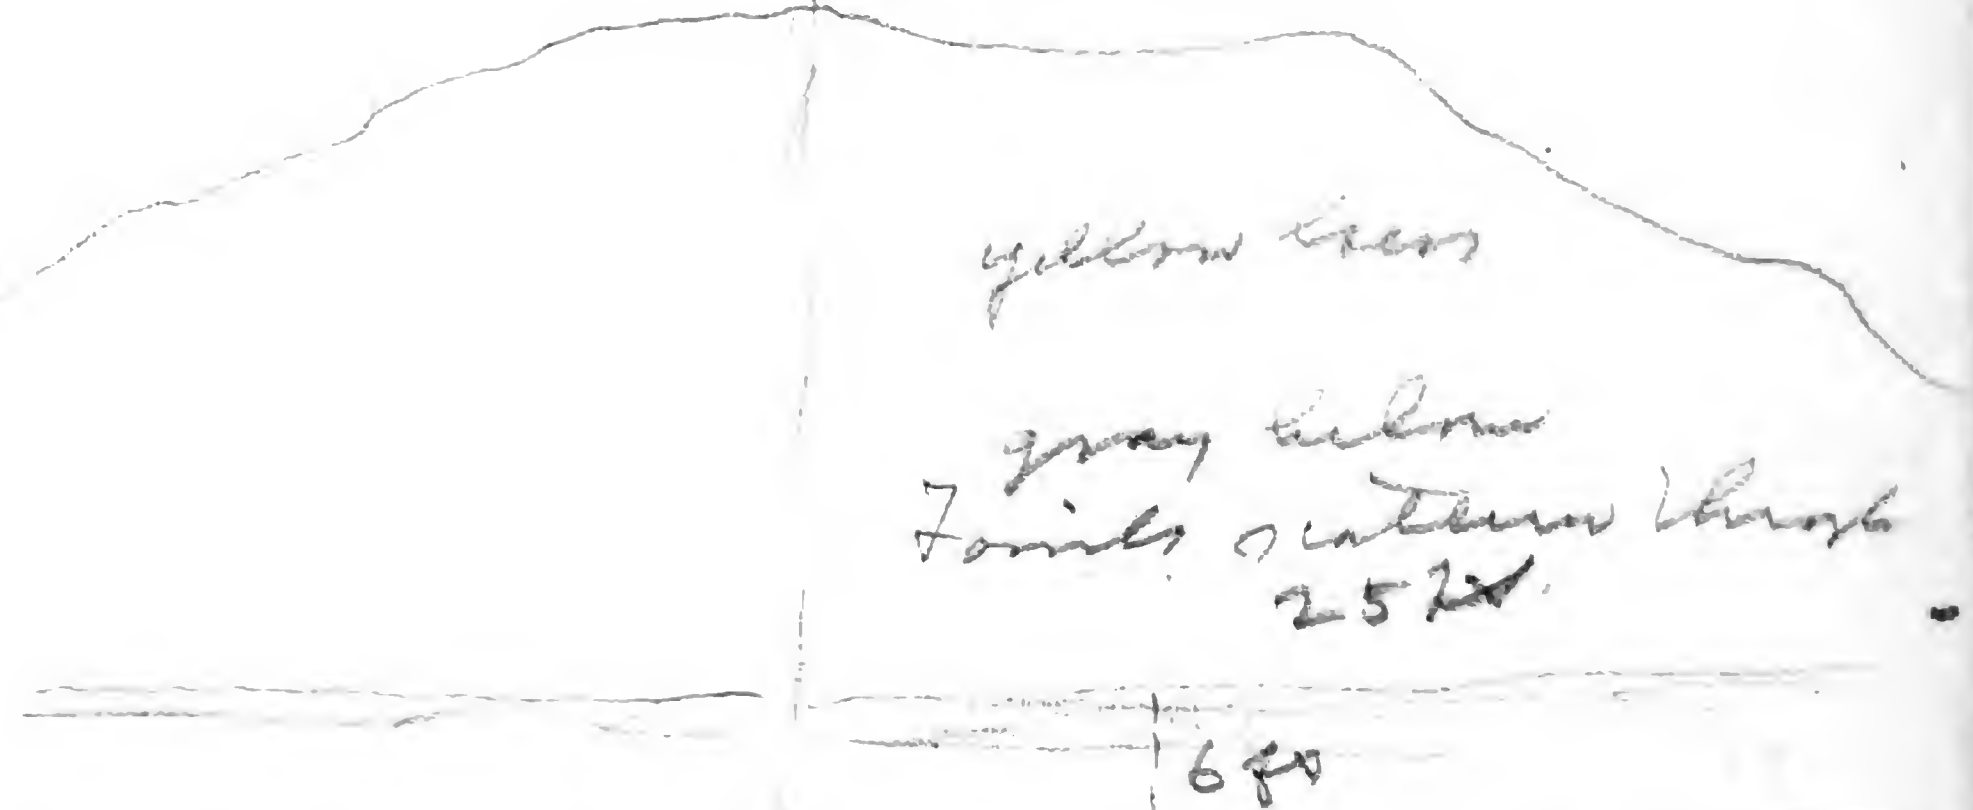 yellow
gray below
Fossils scattered through
25 ft.
6 ft